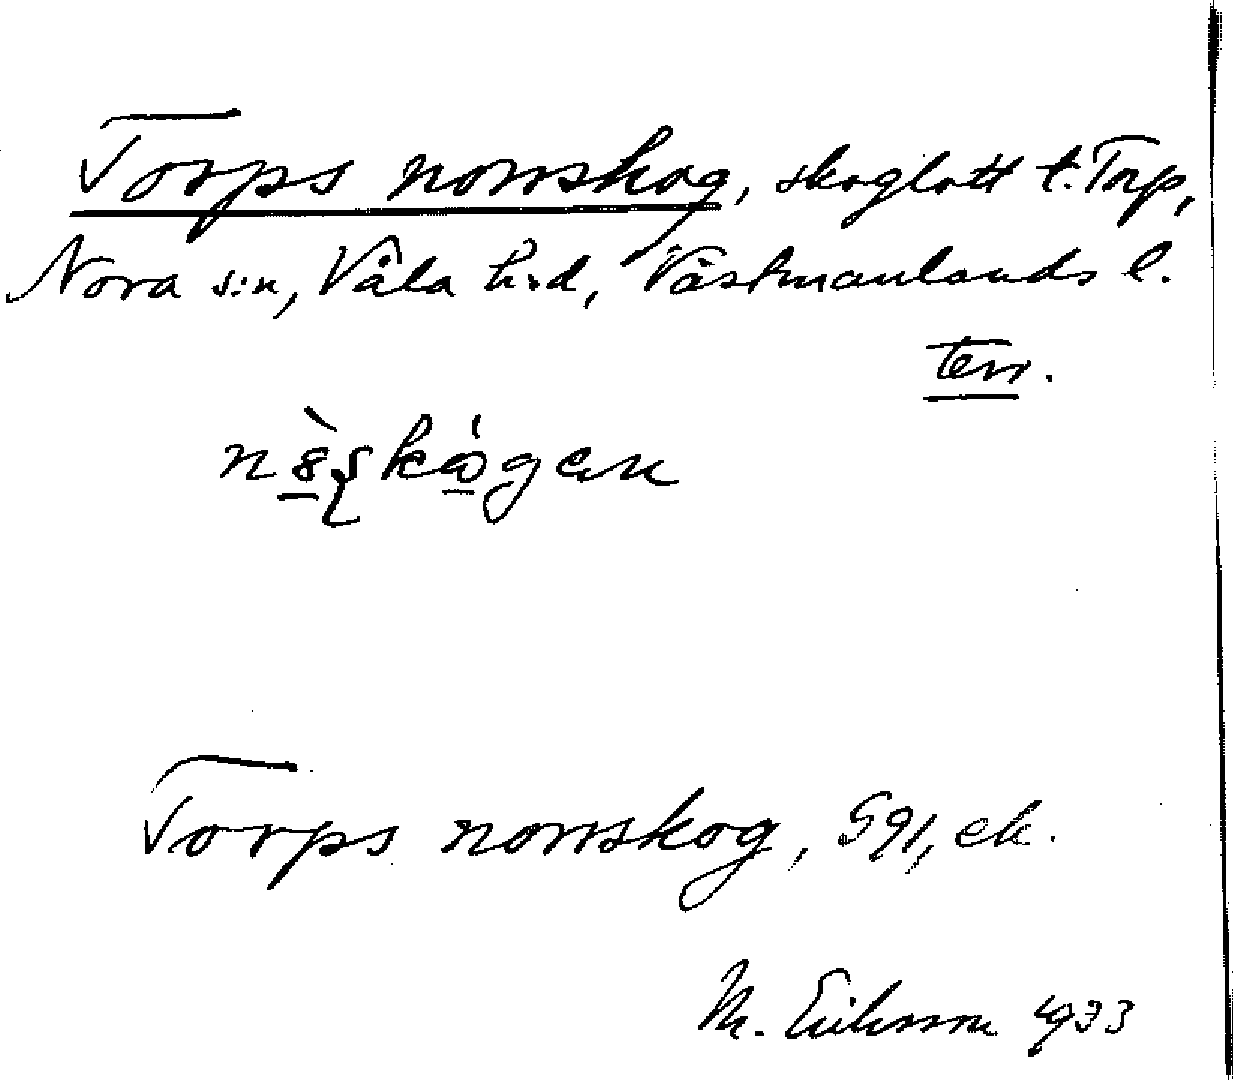 Torps norrskog, skoglott t. Torp,
Nora s:n, Våla h:d, Västmanlands l.
terr.
Torps norrskog, S91, ek.
M. Eriksson 1933